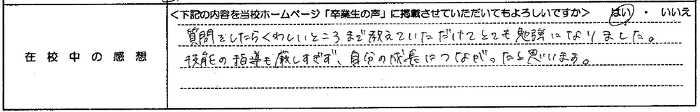 ＜下記の内容を当校ホームページ「卒業生の声」に掲載させていただいてもよろしいですか＞　はい ・ いいえ
在校中の感想
質問をしたらくわしいところまで教えていただけてとても勉強になりました。
技能の指導も厳しすぎず、自分の成長につながったと思います。